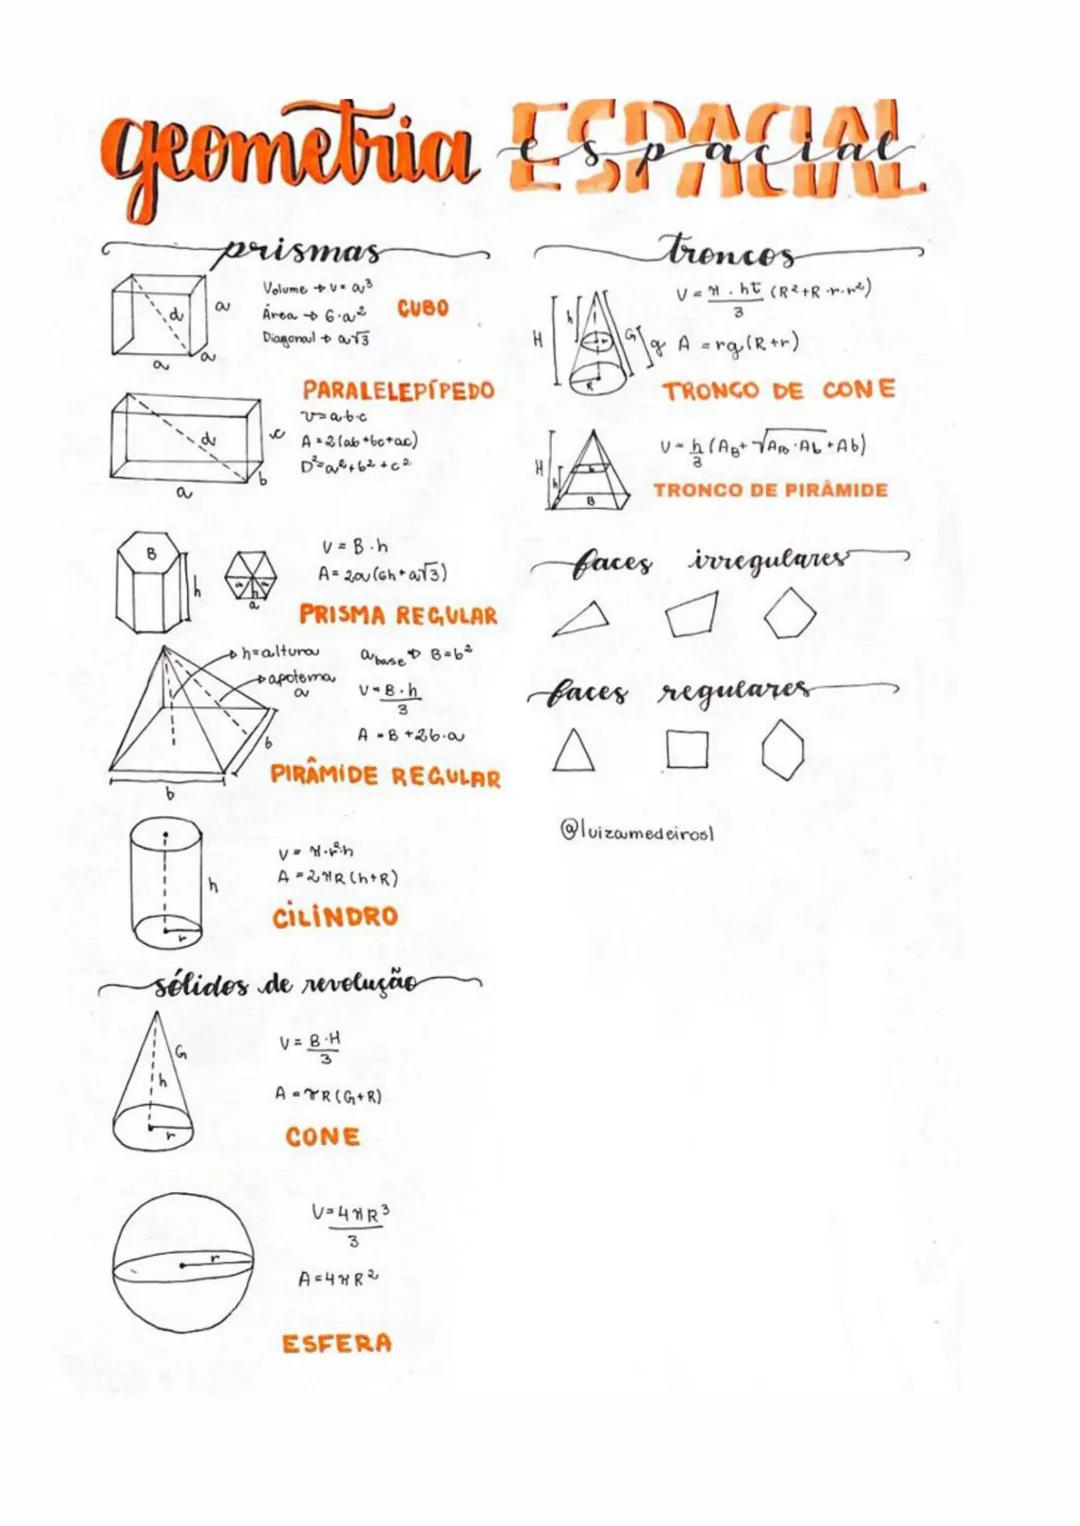 geometria ESPACIAL
espacial
prismas
Volume → V = a³
Área → 6·a²
Diagonal → a√3
CUBO
d
a
a
a
PARALELEPÍPEDO
V = a·b·c
A = 2(ab+bc+ac)
D² = a²+b²+c²
d
c
b
a
B
h
a
a
h
a
V = B·h
A = 2a(6h+a√3)
PRISMA REGULAR
h=altura
apotema
a
b
b
a base → B=b²
V = B·h
3
A = B+2b·a
PIRÂMIDE REGULAR
V = π·r²·h
A = 2πR(h+R)
CILINDRO
h
r
sólidos de revolução
G
h
r
V = B·H
3
A = πR(G+R)
CONE
r
V = 4πR³
3
A = 4πR²
ESFERA
troncos
V = π·ht (R²+R·r·r²)
3
A = rg(R+r)
H
h
G
g
r
R
TRONCO DE CONE
V = h (AB+√AB·Ab+Ab)
3
H
h
b
B
TRONCO DE PIRÂMIDE
faces irregulares
faces regulares
@luizamedeiros1